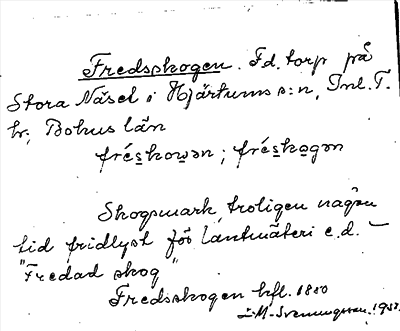 Fredsskogen. F.d. torp på
Stora Näset i Hjärtums s:n, Inl. T.
hr, Bohus län
fréskowən ; fréskogən
Skogsmark, troligen någon
tid fridlyst för lantmäteri e.d. –
"Fredad skog"
Fredsskogen hfl. 1880